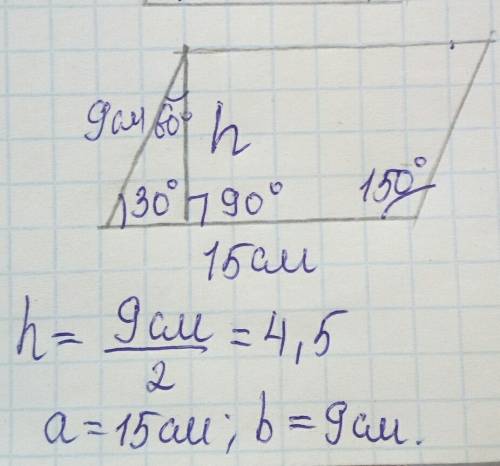 9см 60° h
30° 90° 150°
15см
h = 9см/2 = 4,5
a = 15см; b = 9см.